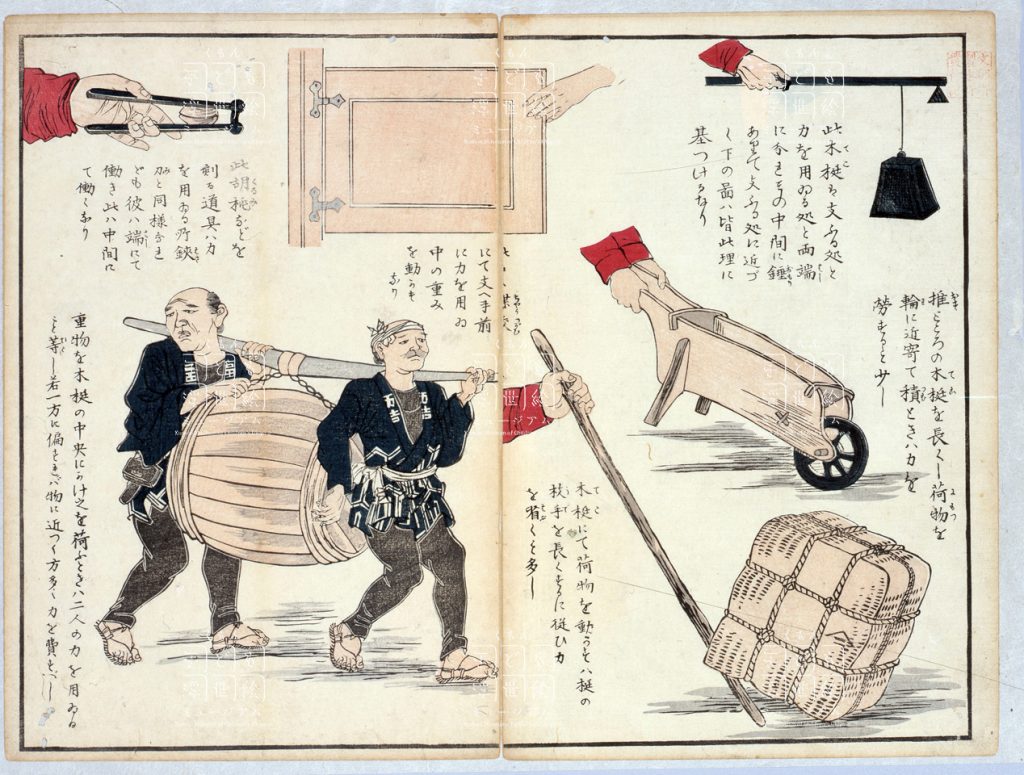 此木梃ハ支ふる処と
力を用ゐる処と両端
に分れその中間に錘
ありて支ふる処に近づ
く下の図ハ皆此理に
基つけるなり
推ところの木梃を長くし荷物を
輪に近寄て積ときハ力を
労すること少し
木梃にて荷物を動かすハ梃の
扶手を長くするに従ひ力
を省くこと多し
にて支へ手前
に力を用ゐ
中の重み
を動かす
なり
此胡桃などを
割る道具ハ力
を用ゐる所鋏
刀と同様なれ
ども彼ハ端にて
働き此ハ中間に
て働くなり
重物を木梃の中央にかけ之を荷ふときハ二人の力を用ゐる
こと等し若一方に偏すれバ物に近つく方多く力を費すべし